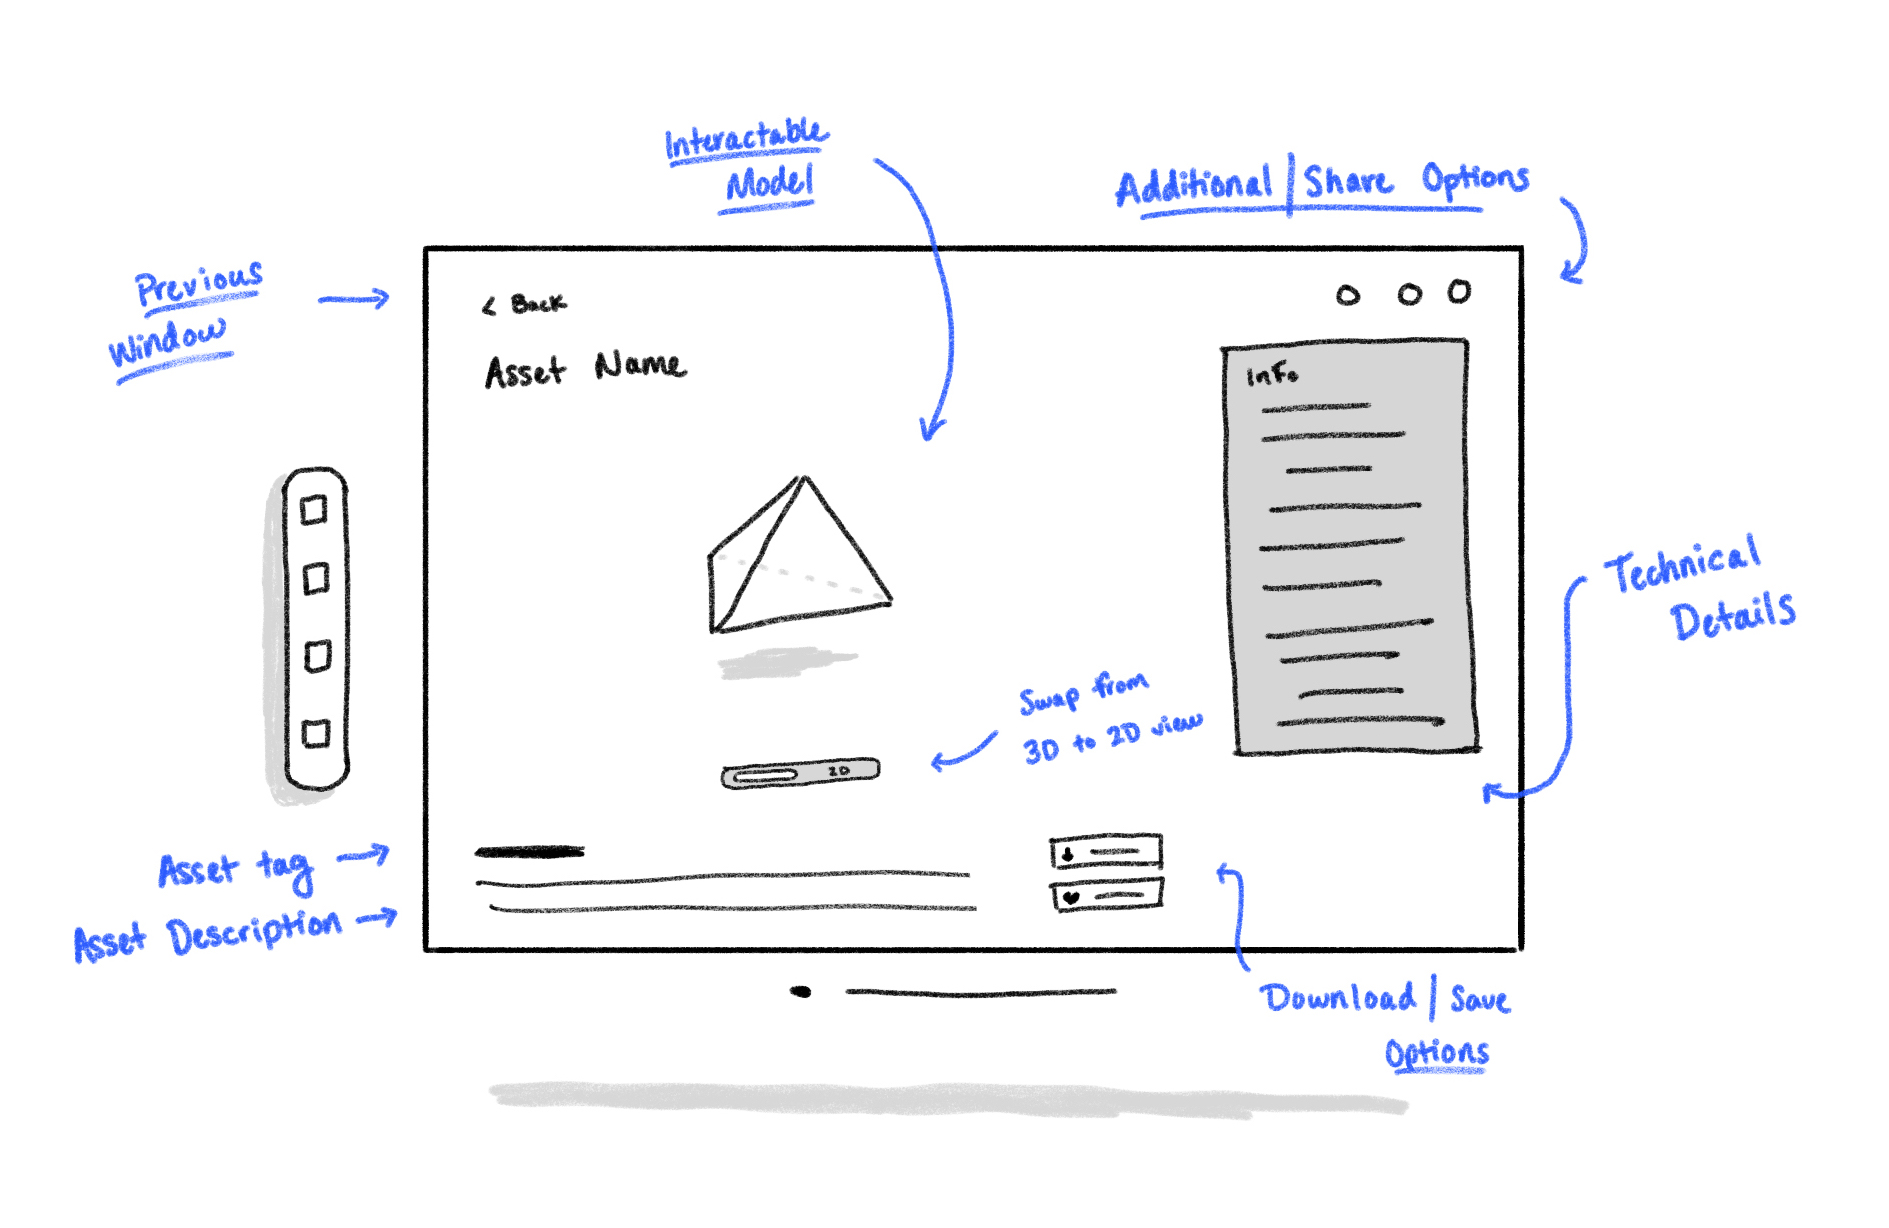 Interactable
Model
Additional | Share Options
Previous
Window
< Back
Asset Name
Info
Technical
Details
Swap from
3D to 2D view
2D
Asset tag
Asset Description
Download | Save
Options